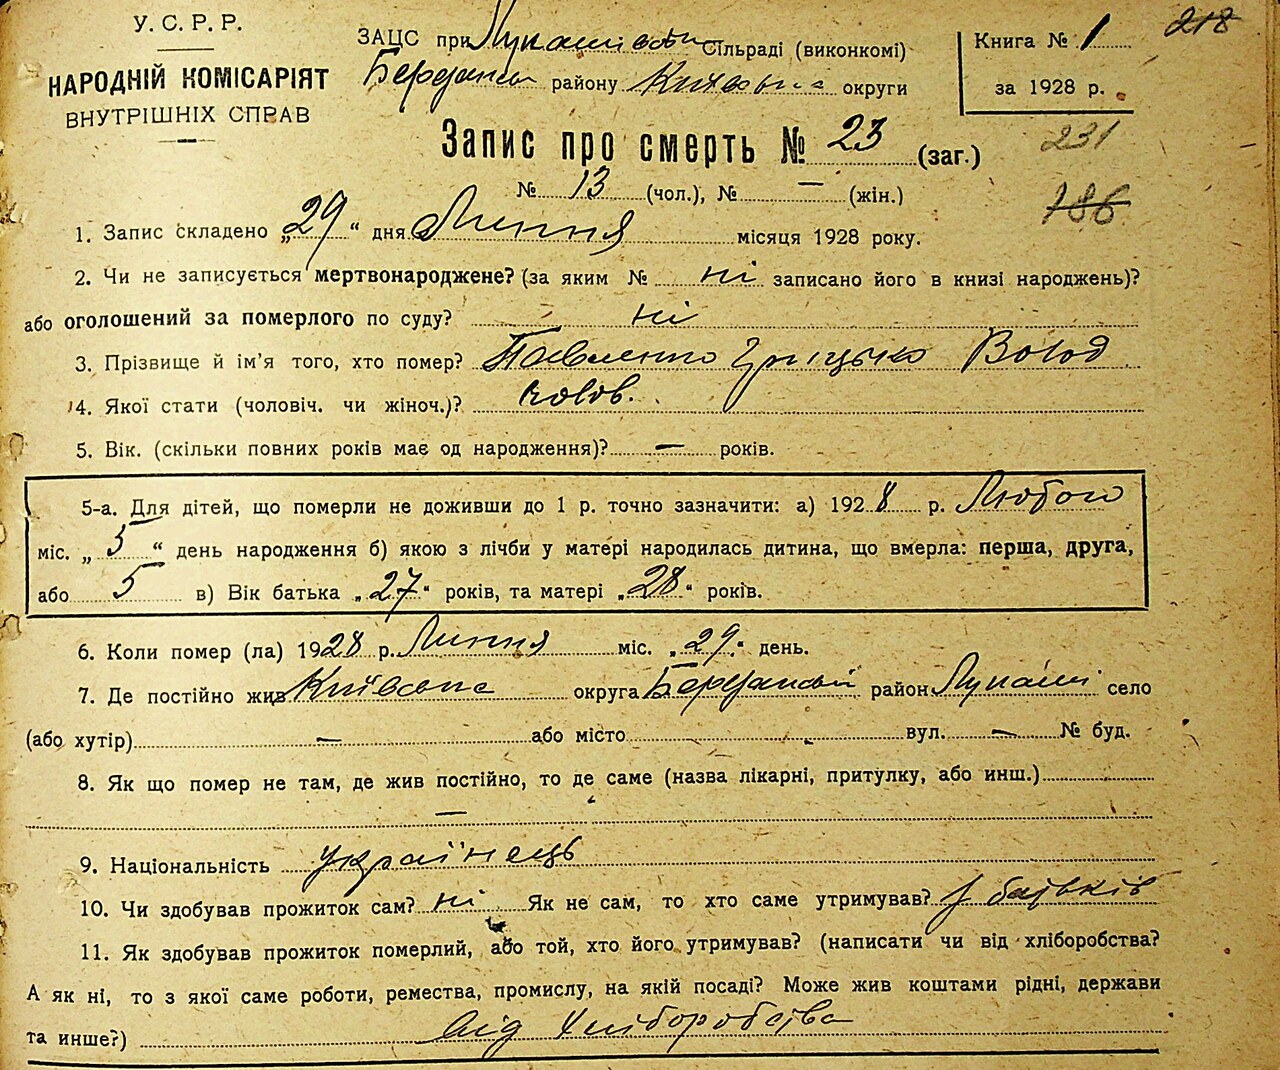 У. С. Р. Р.
НАРОДНІЙ КОМІСАРІЯТ
ВНУТРІШНІХ СПРАВ
ЗАЦС при Лукашівськ Сільраді (виконкомі)
району Київськ округи
Книга № 1
за 1928 р.
218
Запис про смерть № 23 (заг.)
231
№ 13 (чол.), № — (жін.)
186
1. Запис складено „29“ дня Липня місяця 1928 року.
2. Чи не записується мертвонароджене? (за яким № ні записано його в книзі народжень)?
або оголошений за померлого по суду? ні
3. Прізвище й ім'я того, хто помер? Павленко Грицько Волод
4. Якої стати (чоловіч. чи жіноч.)? чолов.
5. Вік. (скільки повних років має од народження)? — років.
5-а. Для дітей, що померли не доживши до 1 р. точно зазначити: а) 1928 р. Лютого
міс. „5“ день народження б) якою з лічби у матері народилась дитина, що вмерла: перша, друга,
або 5 в) Вік батька „27“ років, та матері „28“ років.
6. Коли помер (ла) 1928 р. Липня міс. „29“ день.
7. Де постійно жив Київська округа район Лукаші село
(або хутір) — або місто вул. — № буд.
8. Як що помер не там, де жив постійно, то де саме (назва лікарні, притулку, або инш.)
—
9. Національність українець
10. Чи здобував прожиток сам? ні Як не сам, то хто саме утримував? у батьків
11. Як здобував прожиток померлий, або той, хто його утримував? (написати чи від хліборобства?
А як ні, то з якої саме роботи, ремества, промислу, на якій посаді? Може жив коштами рідні, держави
та инше?) від Хліборобства